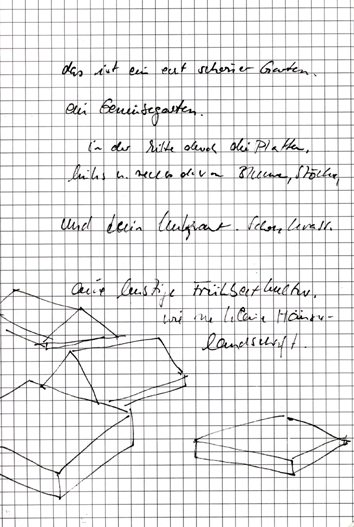 das ist ein echt schöner Garten.
ein Gemüsegarten.
in der Mitte durch die Platten,
links u. rechts davon Blumen, Stöcke,
und kein Unkraut. Schon krass.
eine lustige Frühbeetkultur.
wie ne kleine Häuser-
landschaft.